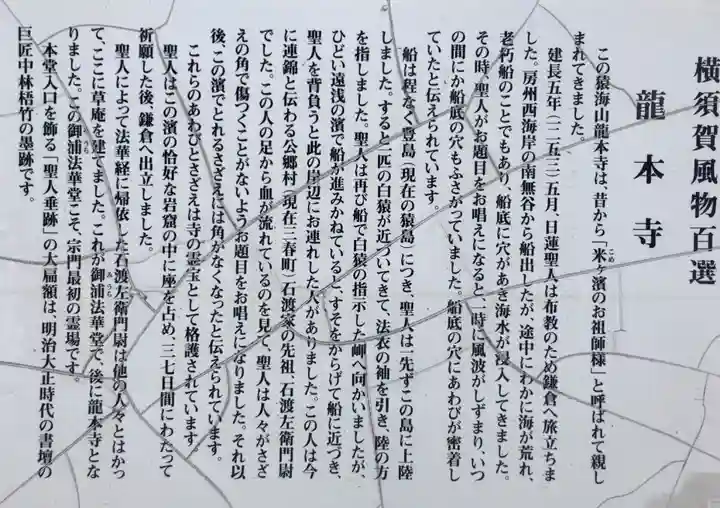 横須賀風物百選
龍本寺
この猿海山龍本寺は、昔から「米ヶ濱のお祖師様」と呼ばれて親し
こめ
まれてきました。
建長五年(一二五三)五月、日蓮聖人は布教のため鎌倉へ旅立ちま
した。房州西海岸の南無谷から船出したが、途中にわかに海が荒れ、
老朽船のことでもあり、船底に穴があき海水が浸入してきました。
その時、聖人がお題目をお唱えになると、一時に風波がしずまり、いつ
の間にか船底の穴もふさがっていました。船底の穴にあわびが密着し
ていたと伝えられています。
船は程なく豊島(現在の猿島)につき、聖人は一先ずこの島に上陸
しました。すると一匹の白猿が近づいてきて、法衣の袖を引き、陸の方
を指しました。聖人は再び船で白猿の指示した岬へ向かいましたが、
ひどい遠浅の濱で船が進みかねていると、すそをからげて船に近づき、
聖人を背負うと此の岸辺にお連れした人がありました。この人は今
に連錦と伝わる公郷村(現在三春町)石渡家の先祖、石渡左衛門尉
でした。この人の足から血が流れているのを見て、聖人は人々がさざ
えの角で傷つくことがないようお題目をお唱えになりました。それ以
後、この濱でとれるさざえには角がなくなったと伝えられています。
これらのあわびとさざえは寺の霊宝として格護されています。
聖人はこの濱の恰好な岩窟の中に座を占め、三七日間にわたって
祈願した後、鎌倉へ出立しました。
聖人によって法華経に帰依した石渡左衛門尉は他の人々とはかっ
て、ここに草庵を建てました。これが御浦法華堂で、後に龍本寺とな
みうら
りました。この御浦法華堂こそ、宗門最初の霊場です。
みうら
本堂入口を飾る「聖人垂跡」の大扁額は、明治大正時代の書壇の
巨匠中林梧竹の墨跡です。